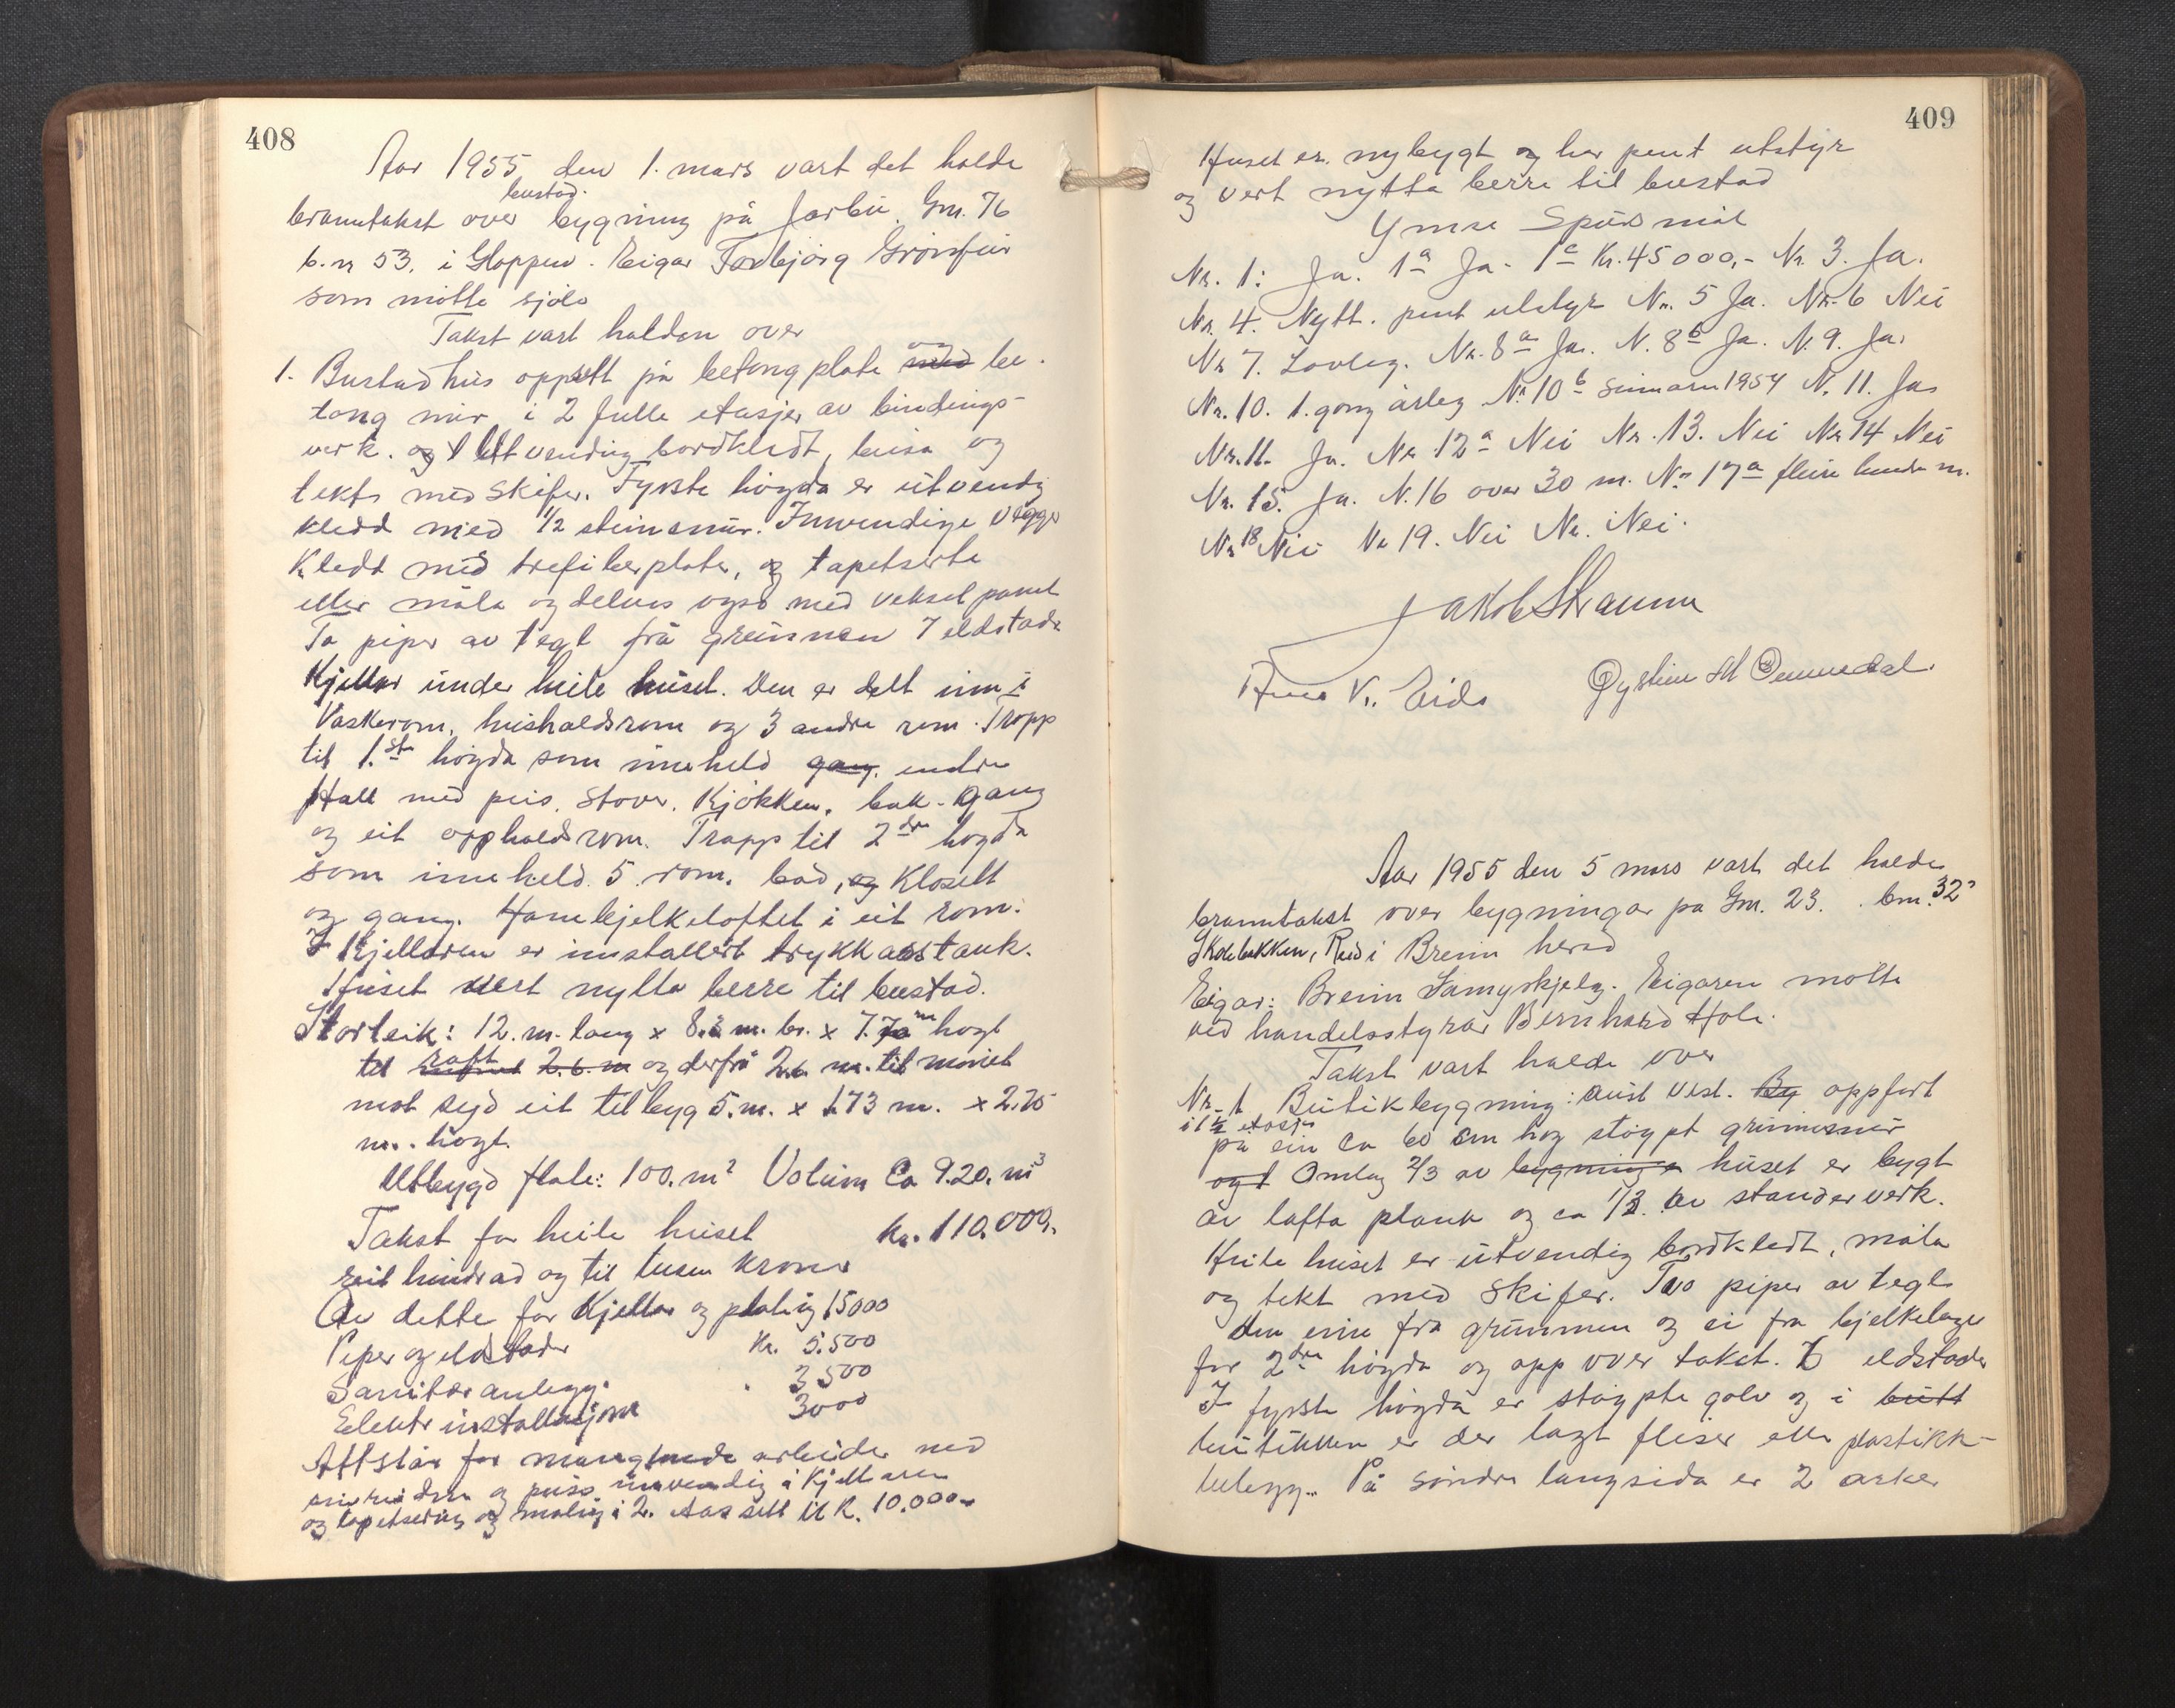 408
Aar 1955 den 1. mars vart det halde
bustad.
branntakst over bygning på Jorbu. Gnr. 76
b.nr 53. i Gloppen. Eigar Torbjørg Grønfur
som møtte sjølv
Takst vart halden over
1. Bustadhus oppsett på betongplate med og be-
tong mur i 2 fulle etasjer av bindings-
verk. og Utvendig bordkledt, husa og
tekt med skifer. Fyrste høgda er utvendig
kledd med 1/2 steinsmur. Innvendige vegger
Kledd med trefiberplater, og tapetserte
eller måla og delvis også med veksel panel
To piper av tegl frå grunnen 7 eldstader
Kjellar under heile huset. Den er delt inn i
Vaskerom, hushaldsrom og 3 andre rom. Tropp
til 1.ste høgda som inneheld gang. indre
Hall med peis. Stover. Kjøkken. bak-gang
og eit oppholdsrom. Trapp til 2dre høgda
som inneheld 5 rom. bad, og Klosett
og gang. Hanebjelkeloftet i eit rom.
I Kjellaren er installert trykkasstank.
Huset vert nytta berre til bustad.
Storleik: 12. m. lang x 8.2 m. br. x 7.70 m høgt
til raft 2.6. m og derfrå 2.6 m. til mønet
mot syd eit tilbyg 5. m. x 1.73 m. x 2.75
m. høgt.
Utbygd flate: 100. m² Volum Ca 920. m³
Takst for heile huset kr. 110.000.
eit hundrad og ti tusen kroner
Av dette for Kjellar og plating 15000
Piper og eldstader kr. 5.500
Sanitæranlegg. " 3500
Elektr installasjon 3000
Attstår for manglande arbeider med
og puss innvendig i Kjellaren
og tapetsering og maling i 2. etasje sett til K. 10.000.-
409
Huset er nybygt og har pent utstyr
og vert nytta berre til bustad
Ymse Spursmål
Nr. 1: Ja. 1a Ja. 1c Kr. 45000,- Nr. 3. Ja.
Nr. 4. Nytt. pent utstyr Nr. 5 Ja. Nr. 6 Nei
Nr 7. Lovleg. Nr. 8a Ja. N. 8b Ja. N. 9. Ja.
Nr. 10. 1. gong årleg Nr 10b sumaren 1954 N. 11. Ja
Nr. 11. Ja. Nr 12a Nei Nr. 13. Nei Nr 14 Nei
Nr. 15. Ja. N. 16 over 30 m. Nr 17a fleire hundre m.
Nr 18 Nei Nr 19. Nei Nr. Nei.
Jakob Straume
Hans Kr. Eide Øystein M Ommedal
Aar 1955 den 5 mars vart det halde
branntakst over bygningar på Gnr. 23. bnr. 32
Skolebakken, Reed i Breim herad
Eigar: Breim Samyrkjelag. Eigaren møtte
ved handelsstyrar Bernhard Hole.
Takst vart halde over
Nr. 1 Butikbygning: aust vest. By oppført
i 1 1/2 etasje
på ein ca 60 cm høg støypt grunnmur
og t Omlag 2/3 av bygninge huset er bygt
av lafta plank og ca 1/3 av standerverk.
Heile huset er utvendig bordkledt, måla
og tekt med skifer. Two piper av tegl
den eine frå grunnen og ei fra bjelkelaget
for 2dre høgda og opp over taket. 7 eldstader
I fyrste høgda er støypte golv og i butt
butikken er der lagt fliser eller plastikk-
belegg. På søndre langsida er 2 arker